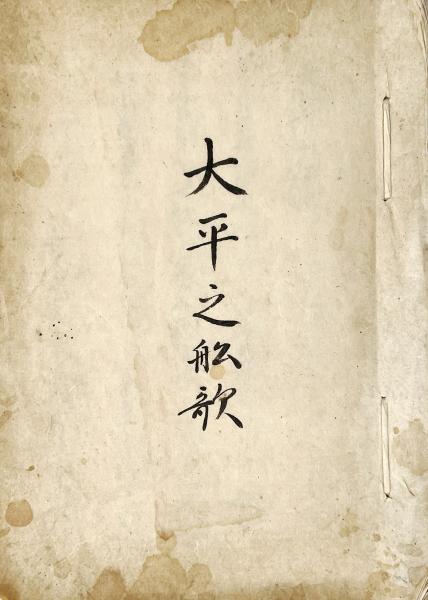 大平之舩歌